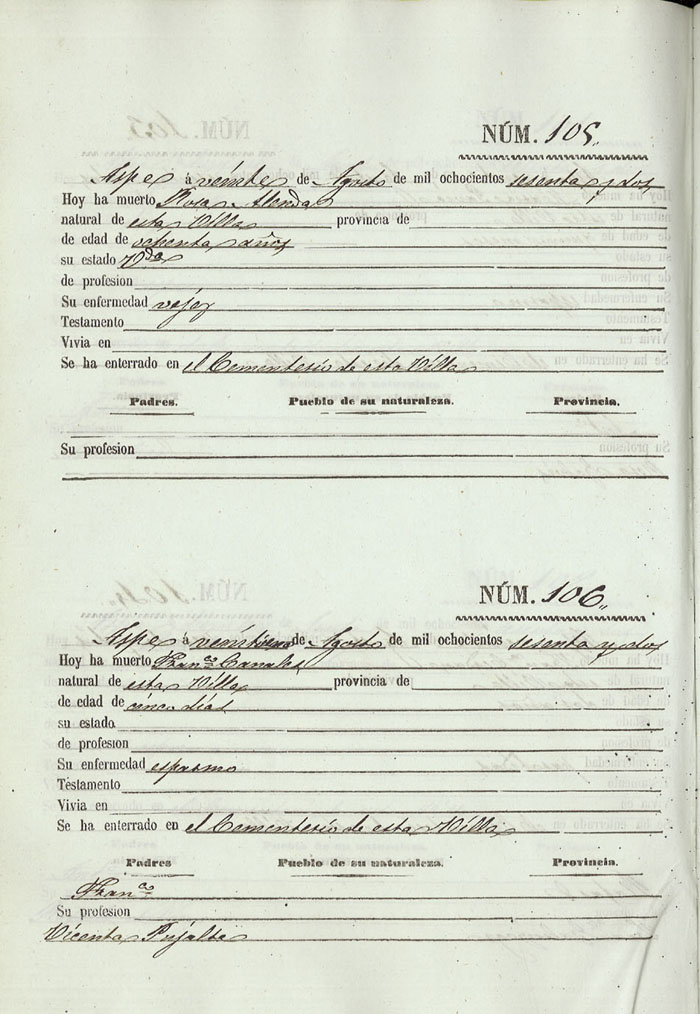 NÚM. 105.
Aspe á veinte de Agosto de mil ochocientos sesenta y dos
Hoy ha muerto Rosa
natural de esta Villa provincia de
de edad de ochenta años
su estado Vda
de profesion
Su enfermedad vejez
Testamento
Vivia en
Se ha enterrado en el Cementerio de esta Villa
Padres. Pueblo de su naturaleza. Provincia.
Su profesion
NÚM. 106.
Aspe á veintiuno de Agosto de mil ochocientos sesenta y dos
Hoy ha muerto Franco Canales
natural de esta Villa provincia de
de edad de cinco dias
su estado
de profesion
Su enfermedad espasmo
Testamento
Vivia en
Se ha enterrado en el Cementerio de esta Villa
Padres Pueblo de su naturaleza. Provincia.
Franco
Su profesion
Vicenta Pujalte